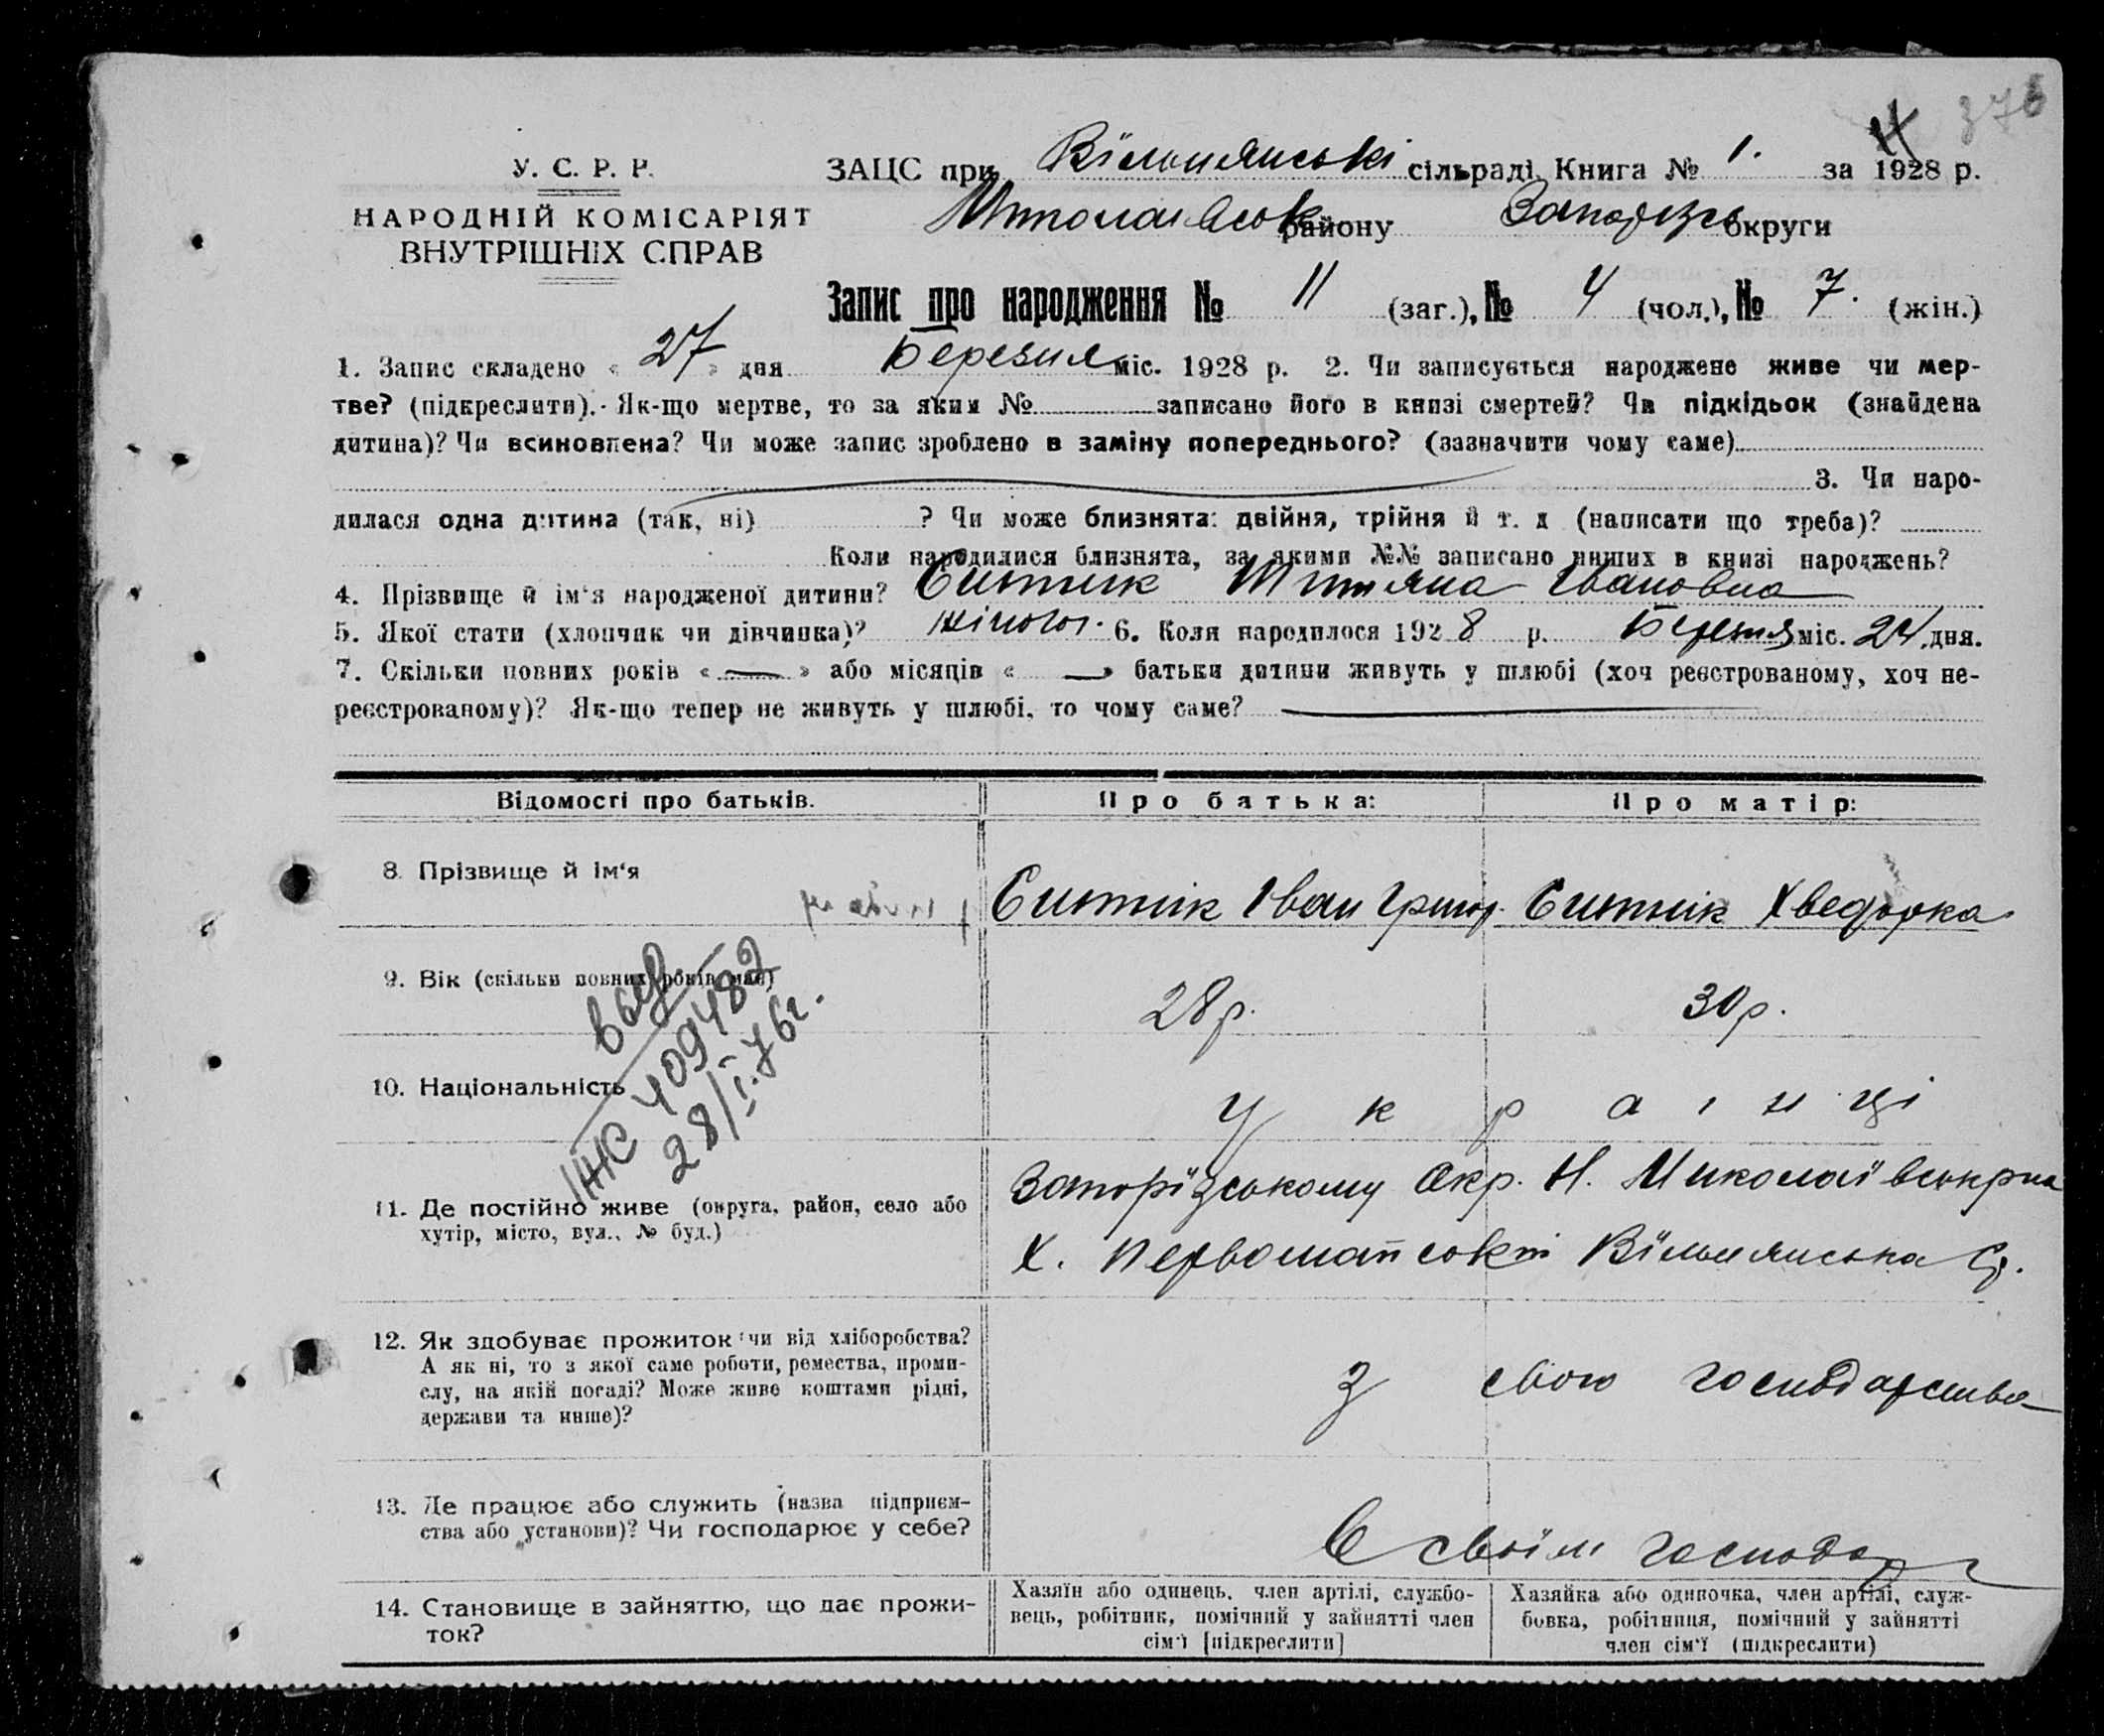 376
У. С. Р. Р.
НАРОДНІЙ КОМІСАРІЯТ
ВНУТРІШНІХ СПРАВ
ЗАЦС при Вільнянські сільраді, Книга № 1. за 1928 р.
району Запорізь округи
Запис про народження № 11 (заг.), № 4 (чол.), № 7. (жін.)
1. Запис складено « 27 » дня Березня міс. 1928 р. 2. Чи записується народжене живе чи мер-
тве? (підкреслити). Як-що мертве, то за яким № записано його в книзі смертей? Чи підкідьок (знайдена
дитина)? Чи всиновлена? Чи може запис зроблено в заміну попереднього? (зазначити чому саме)
3. Чи наро-
дилася одна дитина (так, ні) ? Чи може близнята: двійня, трійня й т. д (написати що треба)?
Коли народилися близнята, за якими №№ записано инших в книзі народжень?
4. Прізвище й ім'я народженої дитини? Ситник Тітяна Івановна
5. Якої стати (хлопчик чи дівчинка)? жіночої. 6. Коли народилося 1928 р. Березня міс. 24 дня.
7. Скільки повних років « — » або місяців « — » батьки дитини живуть у шлюбі (хоч реєстрованому, хоч не-
реєстрованому)? Як-що тепер не живуть у шлюбі, то чому саме?
Відомості про батьків. Про батька: Про матір:
8. Прізвище й ім'я Ситник Іван Григор. Ситник Хведорка
9. Вік (скільки повних років має) 28 р. 30 р.
10. Національність українці
11. Де постійно живе (округа, район, село або
хутір, місто, вул., № буд.)
Запорізському Окр. Н. Миколаївськ рна
Х. Первомайській Вільнянська С/р.
12. Як здобуває прожиток чи від хліборобства?
А як ні, то з якої саме роботи, ремества, проми-
слу, на якій посаді? Може живе коштами рідні,
держави та инше)?
З свого господарства
13. Де працює або служить (назва підприєм-
ства або установи)? Чи господарює у себе?
В своїм господар
14. Становище в зайняттю, що дає прожи-
ток?
Хазяїн або одинець, член артілі, службо-
вець, робітник, помічний у зайнятті член
сім'ї [підкреслити]
Хазяйка або одиночка, член артілі, служ-
бовка, робітниця, помічний у зайнятті
член сім'ї (підкреслити)
409482
28/I.76г.